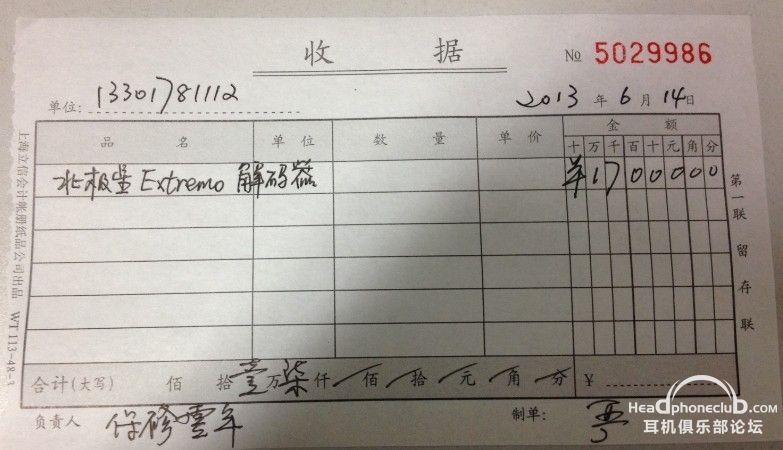 收 据 № 5029986
单位: 13301781112 2013 年 6 月 14 日
品 名 单 位 数 量 单 价 金 额
十 万 千 百 十 元 角 分
北极堡 Extremo 解码器 ¥ 1 7 0 0 0 0 0
合计(大写) 佰 拾 壹 万 柒 仟 佰 拾 元 角 分 ¥
负责人 保修壹年 制单:
第一联留存联
上海立信会计帐册纸品公司出品 WT 113-48-3
HeadPhoneclub.com
耳机俱乐部论坛